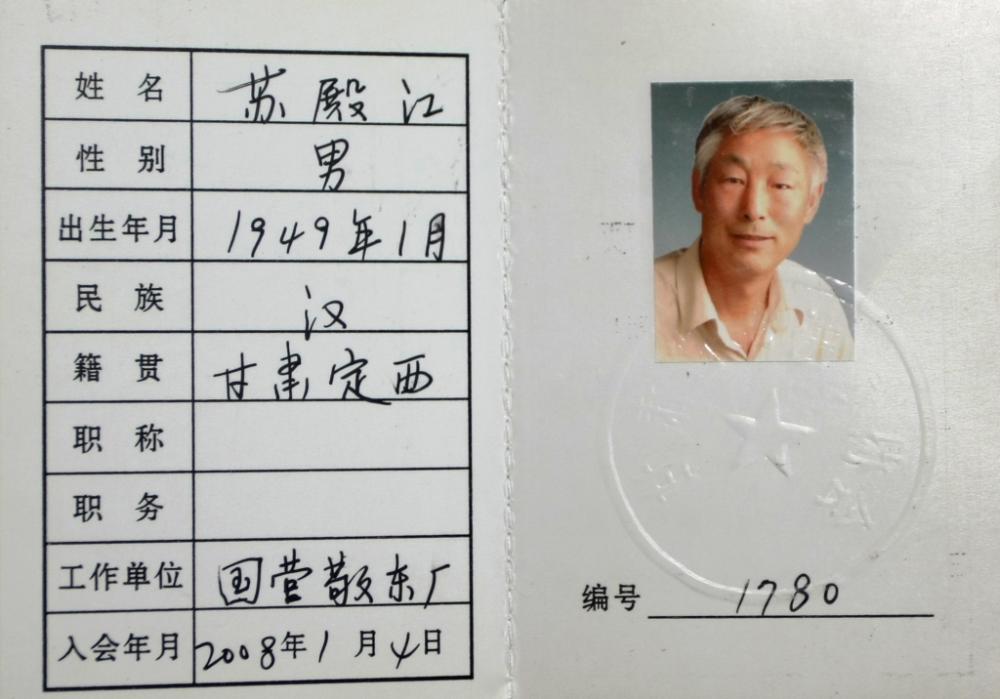 姓名 苏殿江
性别 男
出生年月 1949年1月
民族 汉
籍贯 甘肃定西
职称
职务
工作单位 国营敬东厂
入会年月 2008年1月4日
编号 1780